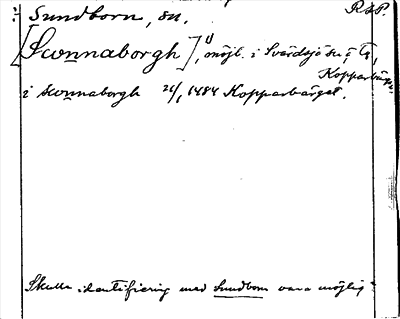 Sundborn, sn. RAP.
[Sconnaborgh] 1), möjl. i Svärdsjö sn,
Kopparbergs.
i Sconnaborgh 26/1 1484 Kopparbärget.
Skulle identifiering med Sundborn vara möjlig?